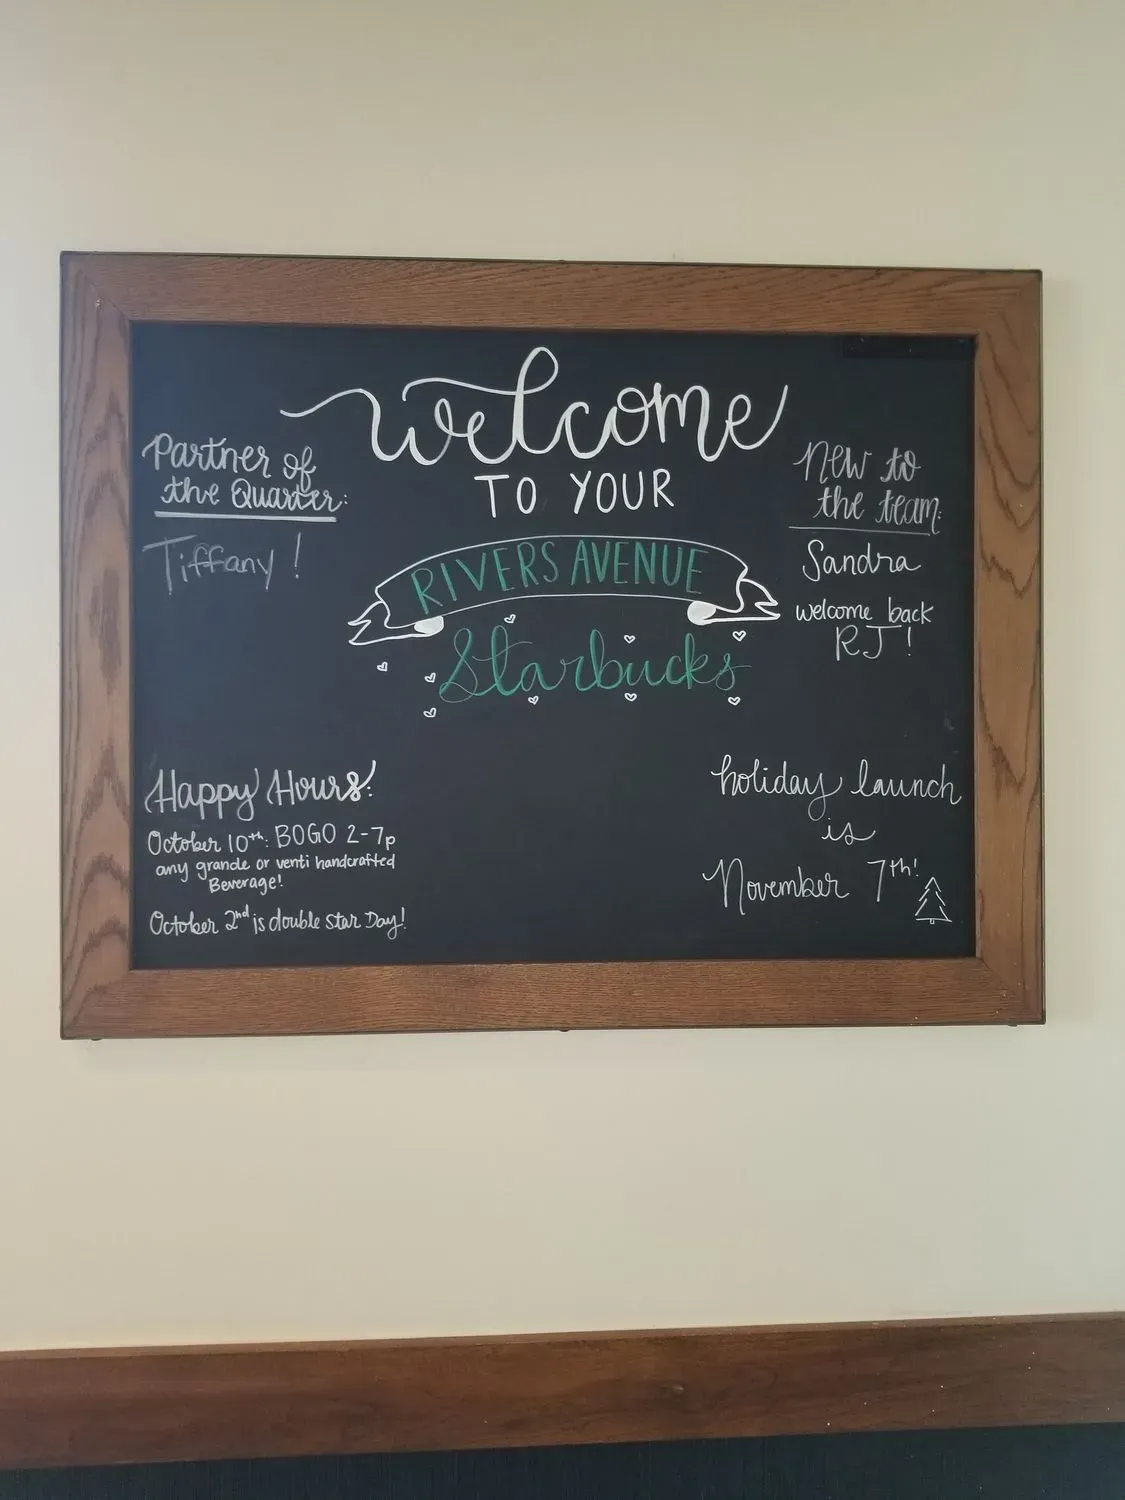 welcome
TO YOUR
RIVERS AVENUE
Starbucks
Partner of
the Quarter:
Tiffany!
New to
the team:
Sandra
welcome back
RJ!
Happy Hours:
October 10th: BOGO 2-7p
any grande or venti handcrafted
Beverage!
October 2nd is double Star Day!
holiday launch
is
November 7th!